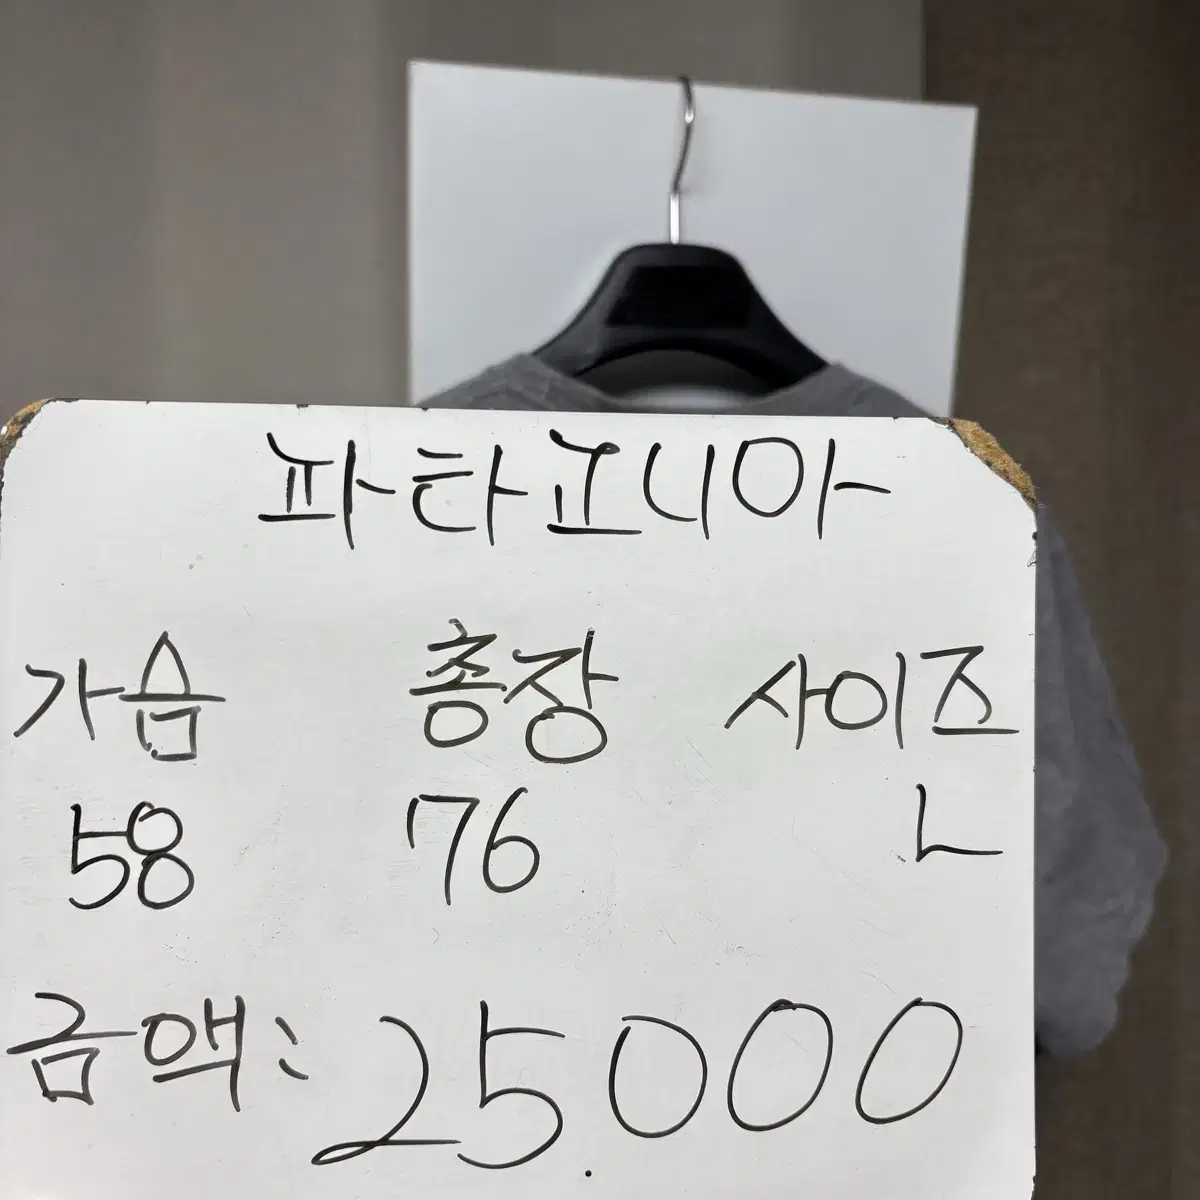 파타고니아
가슴 총장 사이즈
58 76 L
금액: 25.000